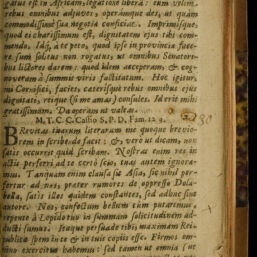 gatus est in Africam, legatione libera: tum velim,
rebus omnibus adjuves, operámque des, ut quàm
commodissimè sua negotia conficiat. Imprimisque,
quod ei charissimum est, dignitatem ejus tibi com-
mendo. Idq́; à te peto, quod ipse in provincia face-
re sum solitus non rogatus, ut omnibus Senatori-
bus lictores darem: quod idem acceperam, & cog-
noveram à summis viris factitatum. Hoc igitur,
mi Cornifici, facies, caeterisque rebus omnibus ejus
dignitati, reique (si me amas) consules. Id erit mihi
gratissimum. Da operam ut valeas.
M. T. C. C. Cassio S. P. D. Fam. 12. 9.
BRevitas tuarum literarum me quoque brevio-
rem in scribendo facit: &, verè ut dicam, non
satis occurrit quid scribam. Nostras enim res in
actis perferri ad te certò scio, tuas autem ignora-
mus. Tanquam enim clausa sit Asia, sic nihil per-
fertur ad nos, præter rumores de oppresso Dola-
bella, satis illos quidem constantes, sed adhuc sine
autore. Nos, confectum bellum cùm putaremus,
repentè à Lepido tuo in summam solicitudinem ad-
ducti sumus. Itaque persuade tibi, maximam Rei-
publicæ spem in te & in tuis copiis esse. Firmos om-
nino exercitus habemus: sed tamen ut omnia (ut